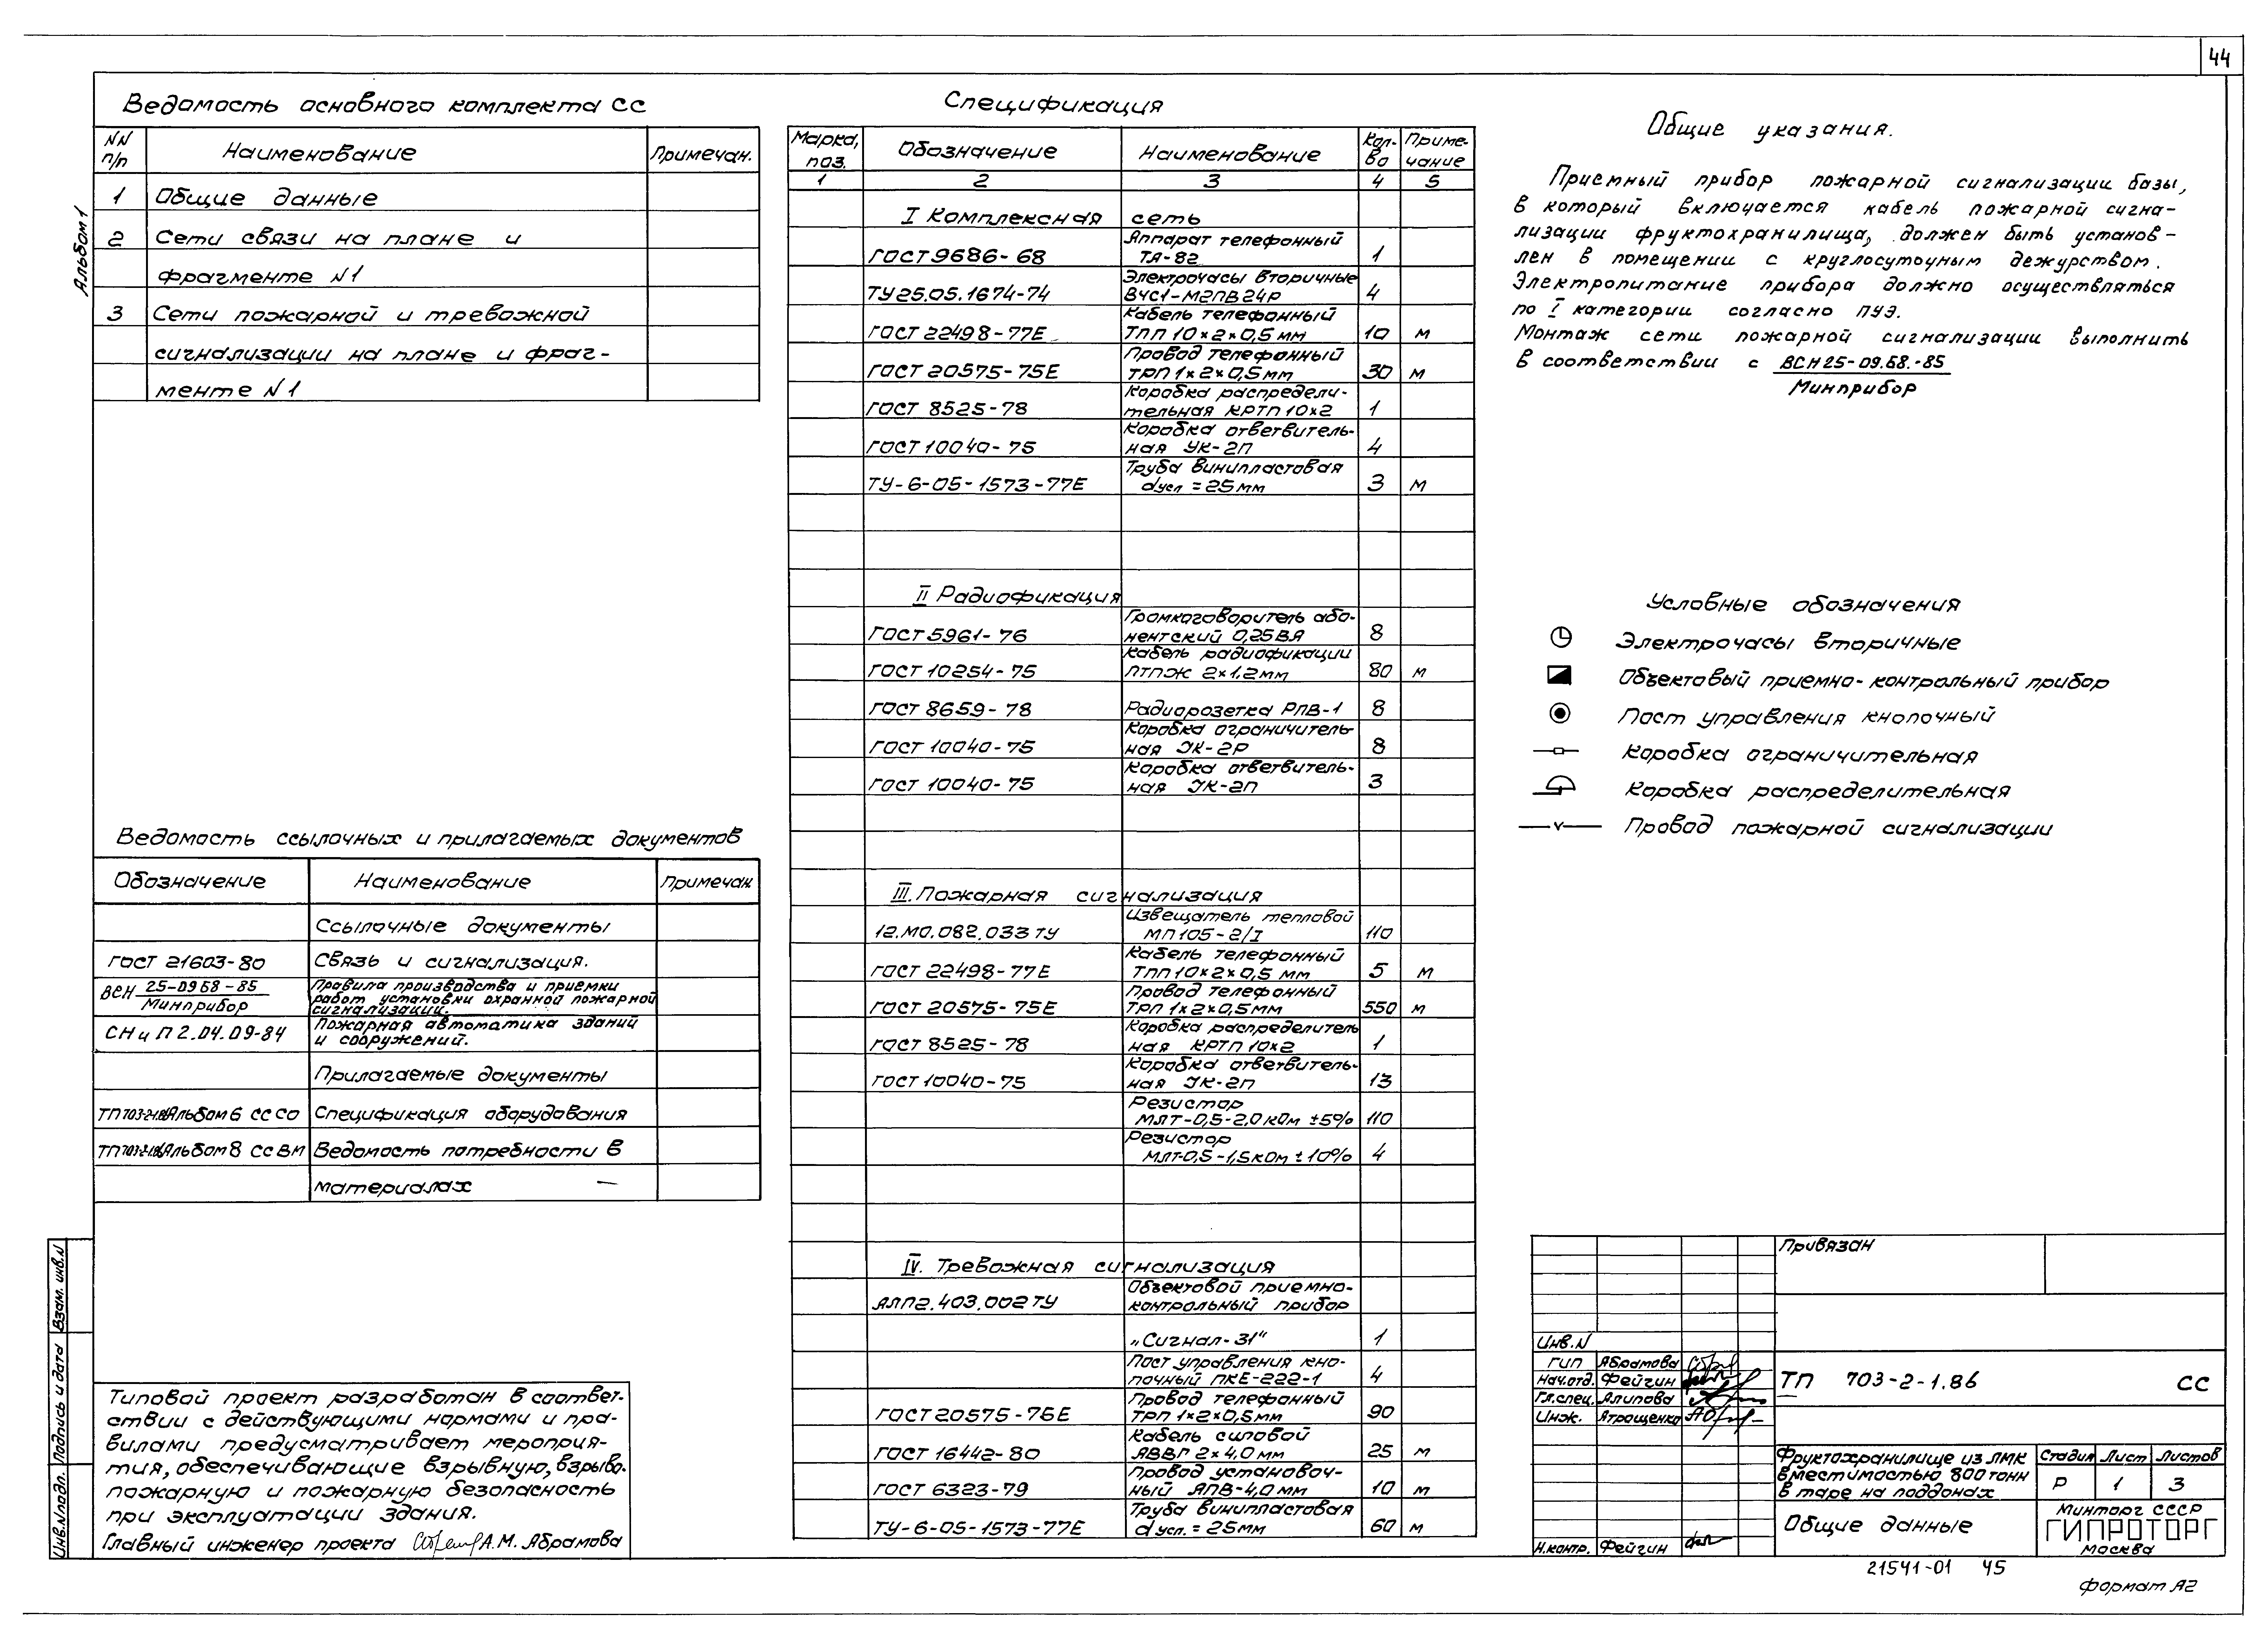 44
Альбом 1
Ведомость основного комплекта СС
NN п/п Наименование Примечан.
1 Общие данные
2 Сети связи на плане и
фрагменте N1
3 Сети пожарной и тревожной
сигнализации на плане и фраг-
менте N1
Ведомость ссылочных и прилагаемых документов
Обозначение Наименование Примечан.
Ссылочные документы
ГОСТ 21603-80 Связь и сигнализация.
ВСН 25-09 68-85 Минприбор Правила производства и приемки
работ установки охранной пожарной
сигнализации.
СНиП 2.04.09-84 Пожарная автоматика зданий
и сооружений.
Прилагаемые документы
ТП 703-2-1.86 Альбом 6 СС СО Спецификация оборудования
ТП 703-2-1.86 Альбом 8 СС ВМ Ведомость потребности в
материалах
Типовой проект разработан в соответ-
ствии с действующими нормами и пра-
вилами предусматривает мероприя-
тия, обеспечивающие взрывную, взрыво-
пожарную и пожарную безопасность
при эксплуатации здания.
Главный инженер проекта А.М. Абрамова
Взам. инв.N
Подпись и дата
Инв.N подл.
Спецификация
Марка, поз. Обозначение Наименование Кол-во Приме-чание
1 2 3 4 5
I Комплексная сеть
Аппарат телефонный
ГОСТ 9686-68 ТА-82 1
Электрочасы вторичные
ТУ25.05.1674-74 ВЧС1-М2ПВ24Р 4
Кабель телефонный
ГОСТ 22498-77Е ТПП 10×2×0,5 мм 10 м
Провод телефонный
ГОСТ 20575-75Е ТРП 1×2×0,5мм 30 м
Коробка распредели-
ГОСТ 8525-78 тельная КРТП 10×2 1
Коробка ответвитель-
ГОСТ 10040-75 ная УК-2П 4
Труба винипластовая
ТУ-6-05-1573-77Е dусл = 25мм 3 м
II Радиофикация
Громкоговоритель або-
ГОСТ 5961-76 нентский 0,25ВА 8
Кабель радиофикации
ГОСТ 10254-75 ПТПЖ 2×1.2мм 80 м
ГОСТ 8659-78 Радиорозетка РПВ-1 8
Коробка ограничитель-
ГОСТ 10040-75 ная УК-2Р 8
Коробка ответвитель-
ГОСТ 10040-75 ная УК-2П 3
III. Пожарная сигнализация
Извещатель тепловой
12.МО.082.033 ТУ МП105-2/I 110
Кабель телефонный
ГОСТ 22498-77Е ТПП 10×2×0,5 мм 5 м
Провод телефонный
ГОСТ 20575-75Е ТРП 1×2×0,5мм 550 м
Коробка распределитель
ГОСТ 8525-78 ная КРТП 10×2 1
Коробка ответвитель-
ГОСТ 10040-75 ная УК-2П 13
Резистор
МЛТ-0,5-2,0 кОм ±5% 110
Резистор
МЛТ-0,5-1,5кОм ±10% 4
IV. Тревожная сигнализация
Объектовой приемно-
АЛП2.403.002 ТУ контрольный прибор
„Сигнал-31" 1
Пост управления кно-
почный ПКЕ-222-1 4
Провод телефонный
ГОСТ 20575-76Е ТРП 1×2×0,5мм 90
Кабель силовой
ГОСТ 16442-80 АВВГ 2×4,0мм 25 м
Провод установоч-
ГОСТ 6323-79 ный АПВ-4,0мм 10 м
Труба винипластовая
ТУ-6-05-1573-77Е dусл. = 25мм 60 м
Общие указания.
Приемный прибор пожарной сигнализации базы,
в который включается кабель пожарной сигна-
лизации фруктохранилища, должен быть установ-
лен в помещении с круглосуточным дежурством.
Электропитание прибора должно осуществляться
по I категории согласно ПУЭ.
Монтаж сети пожарной сигнализации выполнить
в соответствии с ВСН 25-09.68.-85
Минприбор
Условные обозначения
Электрочасы вторичные
Объектовый приемно-контрольный прибор
Пост управления кнопочный
Коробка ограничительная
Коробка распределительная
Провод пожарной сигнализации
Привязан
Инв.N
ГИП Абрамова
Нач.отд. Фейгин
Гл.спец. Алипова
Инж. Атрощенко
Н.контр. Фейгин
ТП 703-2-1.86 СС
Фруктохранилище из ЛМК
вместимостью 800 тонн
в таре на поддонах
Стадия Лист Листов
Р 1 3
Общие данные
Минторг СССР
ГИПРОТОРГ
Москва
21541-01 45
Формат А2